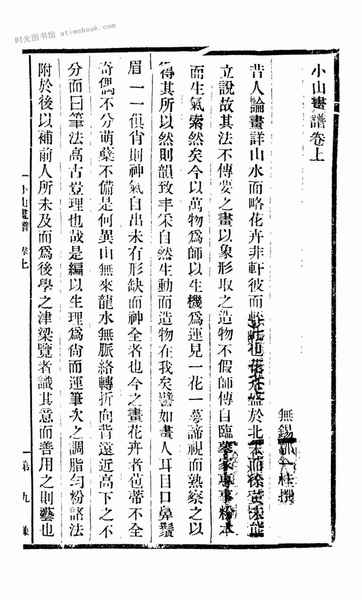 时光图书馆 atimebook.com
小山畫譜卷上
無錫鄒一桂撰
昔人論畫詳山水而略花卉非軒彼而輊此也花卉盛於北宋而徐黃未能
立說故其法不傳要之畫以象形取之造物不假師傳自臨摹家專事粉本
而生氣索然矣今以萬物爲師以生機爲運見一花一萼諦視而熟察之以
得其所以然則韻致丰采自然生動而造物在我矣譬如畫人耳目口鼻鬚
眉一一俱肖則神氣自出未有形缺而神全者也今之畫花卉者苞蒂不全
奇偶不分萌蘗不備是何異山無來龍水無脈絡轉折向背遠近高下之不
分而曰筆法高古豈理也哉是編以生理爲尚而運筆次之調脂勻粉諸法
附於後以補前人所未及而爲後學之津梁覽者識其意而善用之則藝也
小山畫譜 卷上
第九集